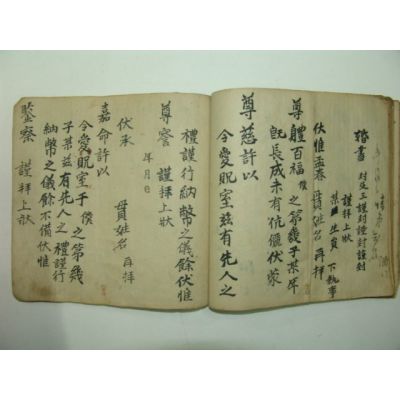 婚書 封及三謹封謹封謹封
謹拜上狀
某生員 下執事
伏惟孟春 貫姓名 再拜
尊體百福僕之第幾子某年
旣長成未有伉儷伏蒙
尊慈許以
令愛貺室茲有先人之
禮謹行納幣之儀餘伏惟
尊察 謹拜上狀
年月日
伏承 貫姓名 再拜
嘉命許以
令愛貺室子僕之第幾
子某茲有先人之禮謹行
納幣之儀餘不備伏惟
鑒察 謹拜上狀